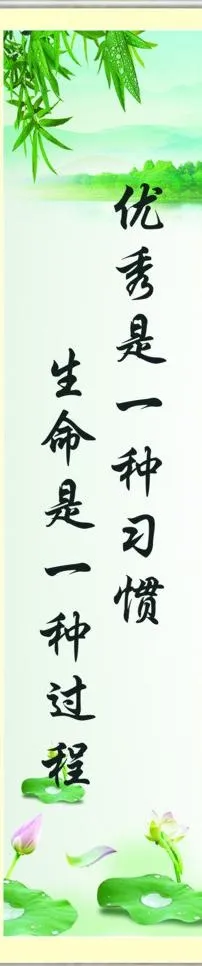 优秀是一种习惯
生命是一种过程